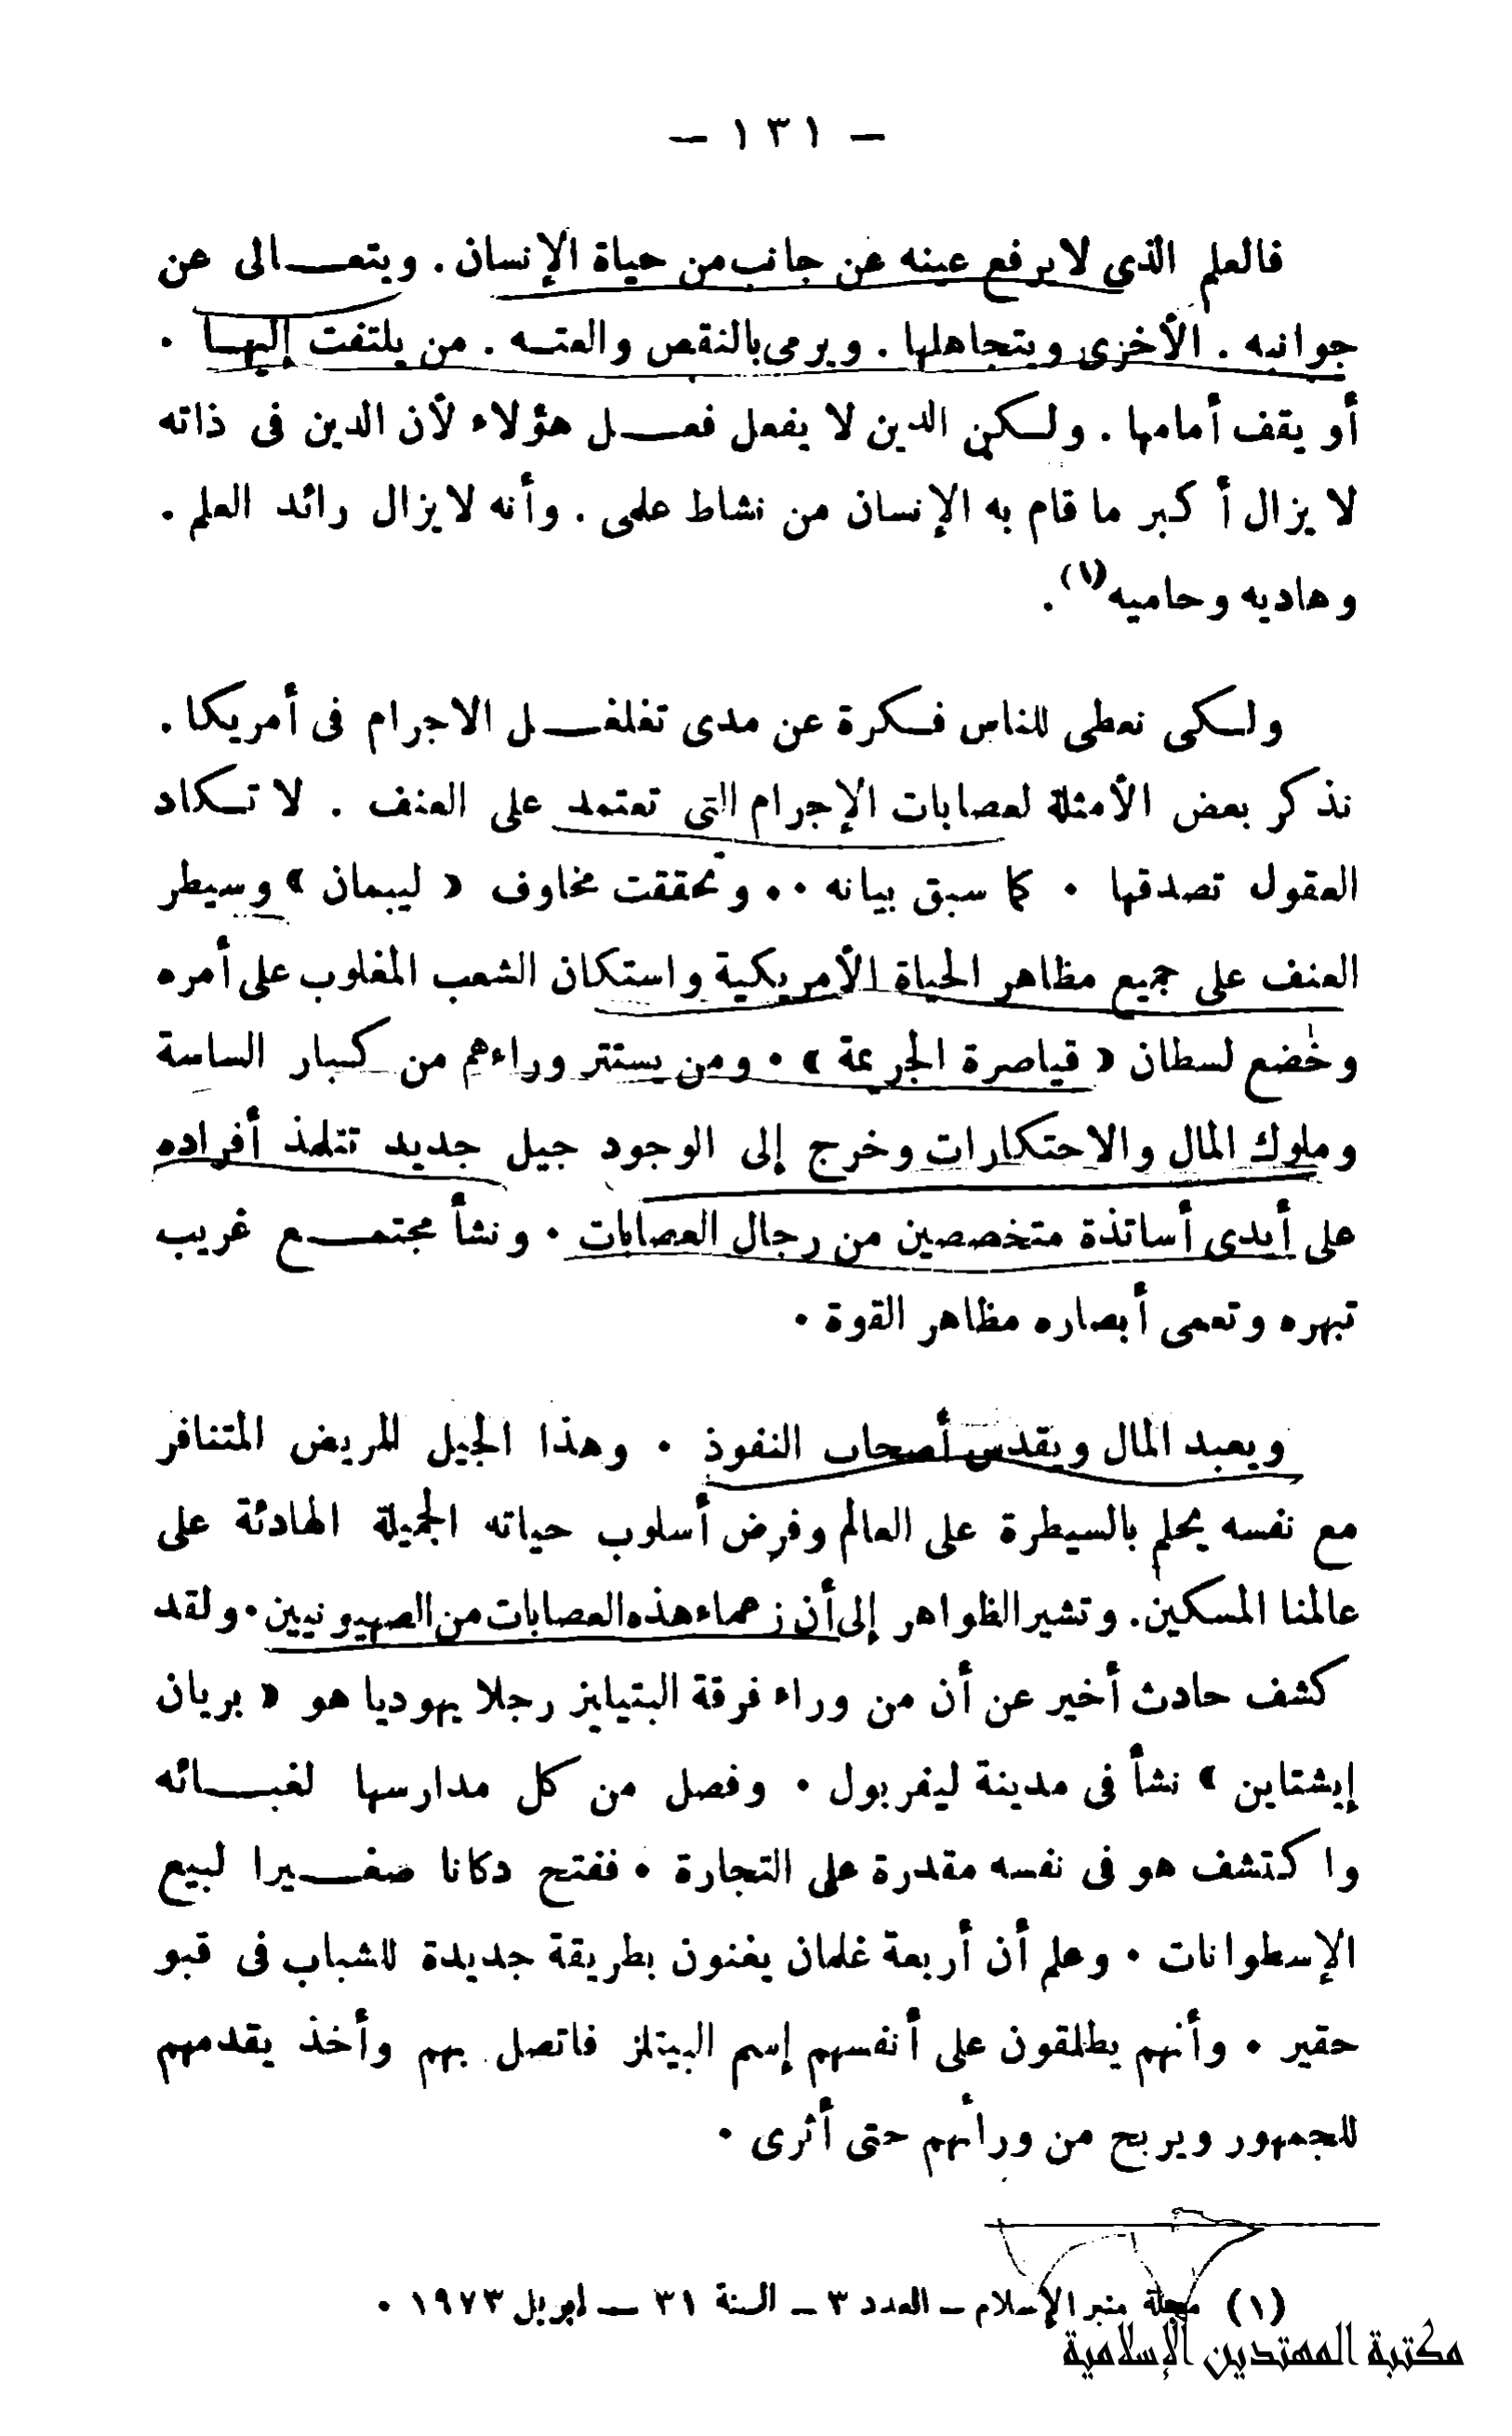 — ١٣١ —
فالعلم الذي لا يرفع عينه عن جانب من حياة الإنسان . ويتعـالى عن
جوانبه . الأخرى ويتجاهلها . ويرمى بالنقص والعتـه . من يلتفت إليهـا .
أو يقف أمامها . ولـكن الدين لا يفعل فعـل هؤلاء لأن الدين فى ذاته
لا يزال أكبر ما قام به الإنسان من نشاط علمى . وأنه لا يزال رائد العلم .
وهاديه وحاميه (١) .
ولـكى نعطى للناس فـكرة عن مدى تغلغـل الاجرام فى أمريكا .
نذكر بعض الأمثلة لعصابات الإجرام التى تعتمد على العنف . لا تـكاد
العقول تصدقها . كما سبق بيانه . . وتحققت مخاوف « ليبمان » وسيطر
العنف على جميع مظاهر الحياة الأمريكية واستكان الشعب المغلوب على أمره
وخضع لسطان « قياصرة الجريمة » . ومن يستتر وراءهم من كبار الساسة
وملوك المال والاحتكارات وخرج إلى الوجود جيل جديد تتلمذ أفراده
على أيدى أساتذة متخصصين من رجال العصابات . ونشأ مجتمـع غريب
تبهره وتعمى أبصاره مظاهر القوة .
ويعبد المال ويقدس أصحاب النفوذ . وهذا الجيل المريض المتنافر
مع نفسه يحلم بالسيطرة على العالم وفرض أسلوب حياته الجميلة الهادئة على
عالمنا المسكين . وتشير الظواهر إلى أن زعماء هذه العصابات من الصهيونيين . ولقد
كشف حادث أخير عن أن من وراء فرقة البتيايز رجلا يهوديا هو « بريان
إيشتاين » نشأ فى مدينة ليفربول . وفصل من كل مدارسها لغبـائه
واكتشف هو فى نفسه مقدرة على التجارة . ففتح دكانا صغـيرا لبيع
الإسطوانات . وعلم أن أربعة غلمان يغنون بطريقة جديدة للشباب فى قبو
حقير . وأنهم يطلقون على أنفسهم إسم البيتلز فاتصل بهم وأخذ يقدمهم
للجمهور ويربح من ورأهم حتى أثرى .
(١) مجلة منبر الإسلام — العدد ٣ — السنة ٣١ — ابريل ١٩٧٣ .
مكتبة المهتدين الإسلامية